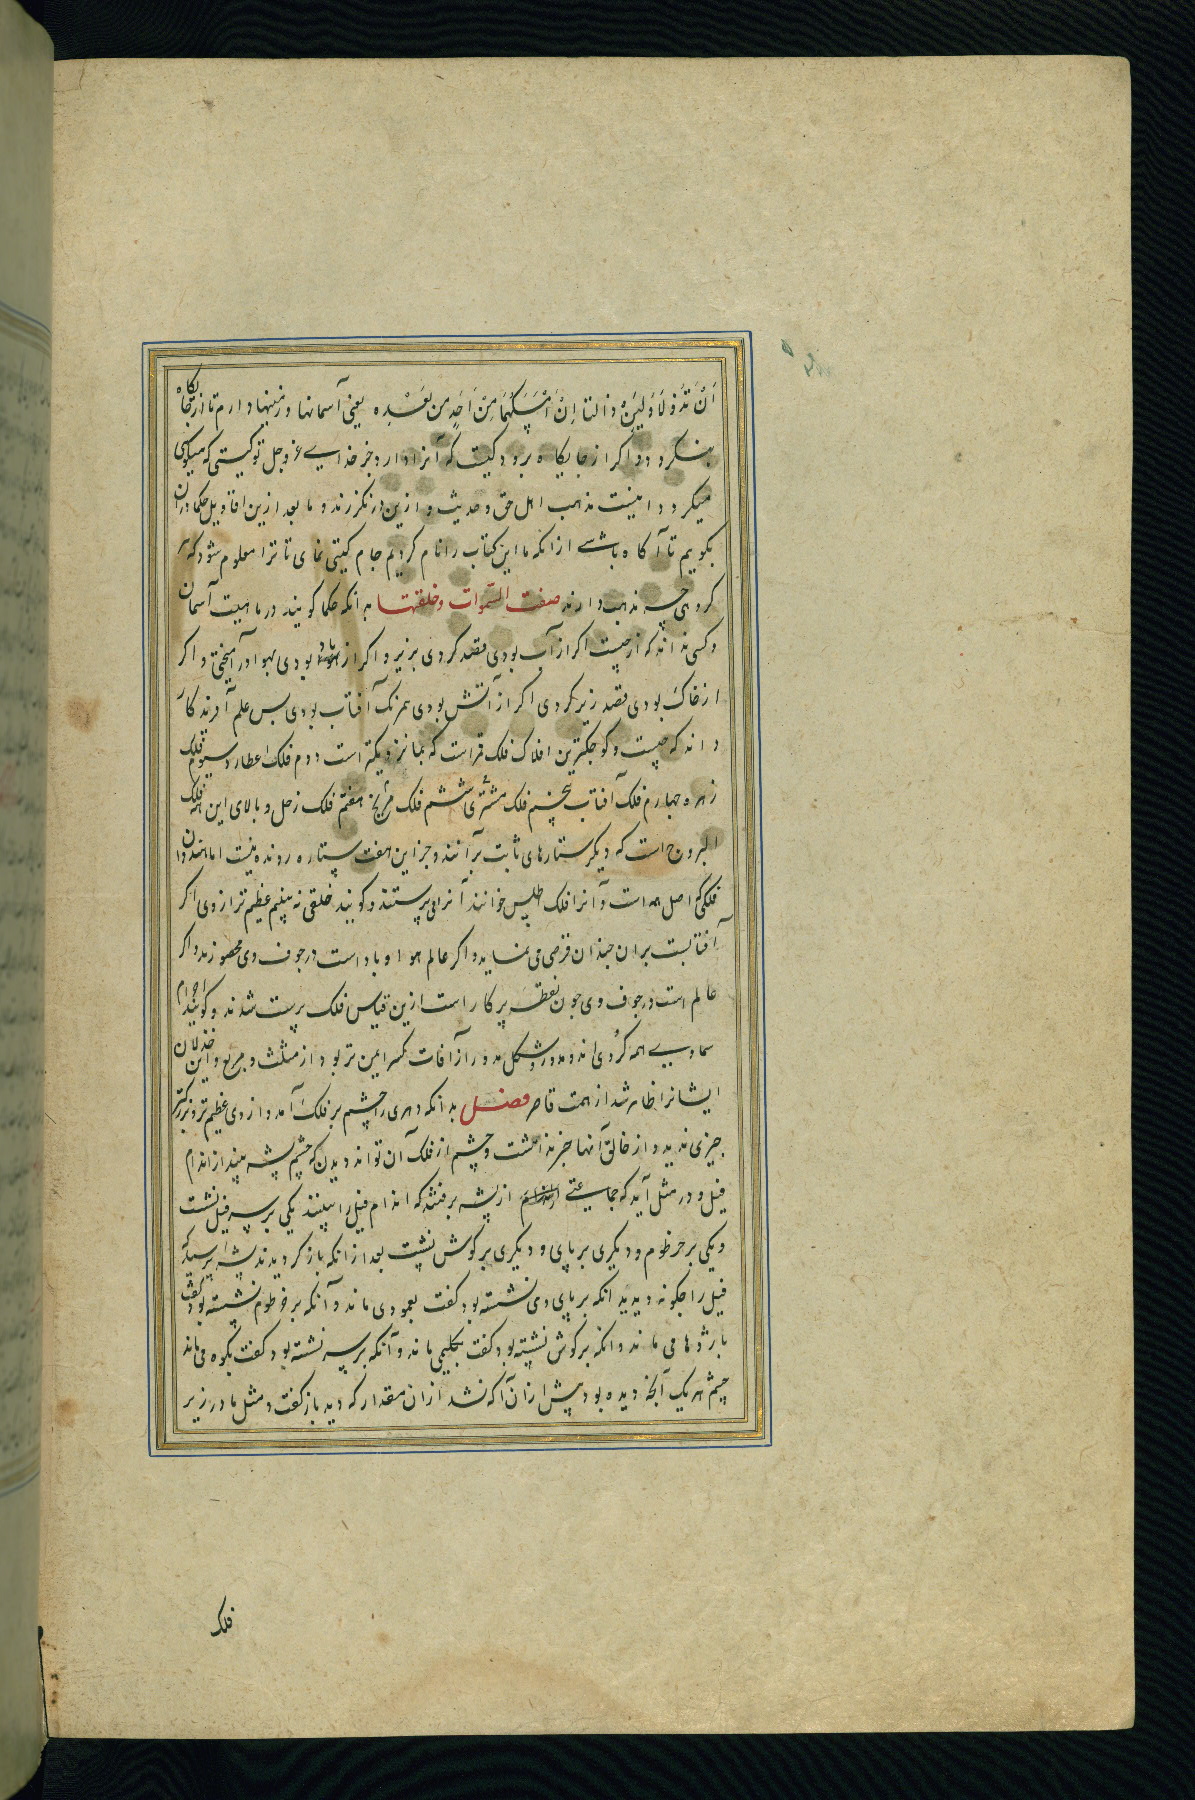 اَنْ تَزُولَا وَلَئِنْ زالتا اِنْ اَمْسَکَهُمَا مِنْ اَحَدٍ مِن بَعْدِه یعنی آسمانها و زمینها دارم تا از جایکاه
بنکردد و اکر از جایکاه برود کیست که آنرا دارد جز خدایی عز و جل تو کیستی که میکوی
میکردد اینست مذهب اهل حق و حدیث و ازین در نکزرند و ما بعد ازین اقاویل حکما در ان
بکوییم تا آکاه باشی ازانکه ما این کتاب را نام کردیم جام کیتی نمای تا ترا معلوم شود که هر
کروهی چه مذهب دارند صفت السموات و خلقتها بدانکه حکما کویند در ماهیت آسمان
و کسی نداند که از چیست اکر از آب بودی قصد کردی بزیر و اکر از هوا بودی بهوا در آمیختی و اکر
از خاک بودی قصد زیر کردی اکر از آتش بودی همرنک آفتاب بودی بس علم آفریدکار
داند که چیست و کوجکترین افلاک فلک قمر است که بما نزدیکتر است دوم فلک عطارد سیوم فلک
زهره جهارم فلک آفتاب بنجم فلک مشتری ششم فلک مریخ هفتم فلک زحل و بالای این همه فلک
البروج است که دیکر ستارهای ثابت برآنند و جز این هفت ستاره رونده نیست اما هندوان
فلکی که اصل همه است و آنرا فلک اطلس خوانند آنرا می پرستند و کویند خلقی نه بینیم عظیم تر از وی اکر
آفتابست بران جندان قرصی می نماید و اکر عالم هوا و باد است در جوف وی محصورند و اکر
عالم است در جوف وی جون نقطه پرکار است ازین قیاس فلک پرست شدند و کویند اجرام
سماویی همه کُروی اند و مدور و شکل مدور از آفات کسر ایمن تر بود از مثلث و مربع و این خذلان
ایشانرا ظاهر شد از همت قاصر فصل بدانکه دهری را چشم بر فلک آمد و از وی عظیم تر و بزرکتر
جیزی ندید و از خالق آنها خبر نداشت و چشم از فلک آن تواند دیدن که چشم پشه بیند از اندام
فیل و در مثل آید که جماعتی از پشه برفتند که اندام فیل را ببینند یکی بر سر فیل نشست
و یکی بر خرطوم و دیکری بر پای و دیکری بر کوش نشست بعد ازانکه باز کردیدند پشه پرسید که
فیل را جکونه دیدید انکه بر پای وی نشسته بود کفت بعمودی ماند و آنکه بر خرطوم نشسته بود کفت
بارژدها می ماند و انکه بر کوش نشسته بود کفت بکلیمی ماند و آنکه بر سر نشسته بود کفت بکوه می ماند
چشم هر یک آنجه دیده بود پیش ازان آکه نشد ازان مقدار که دید باز کفت و مثل ما در زیر
فلک